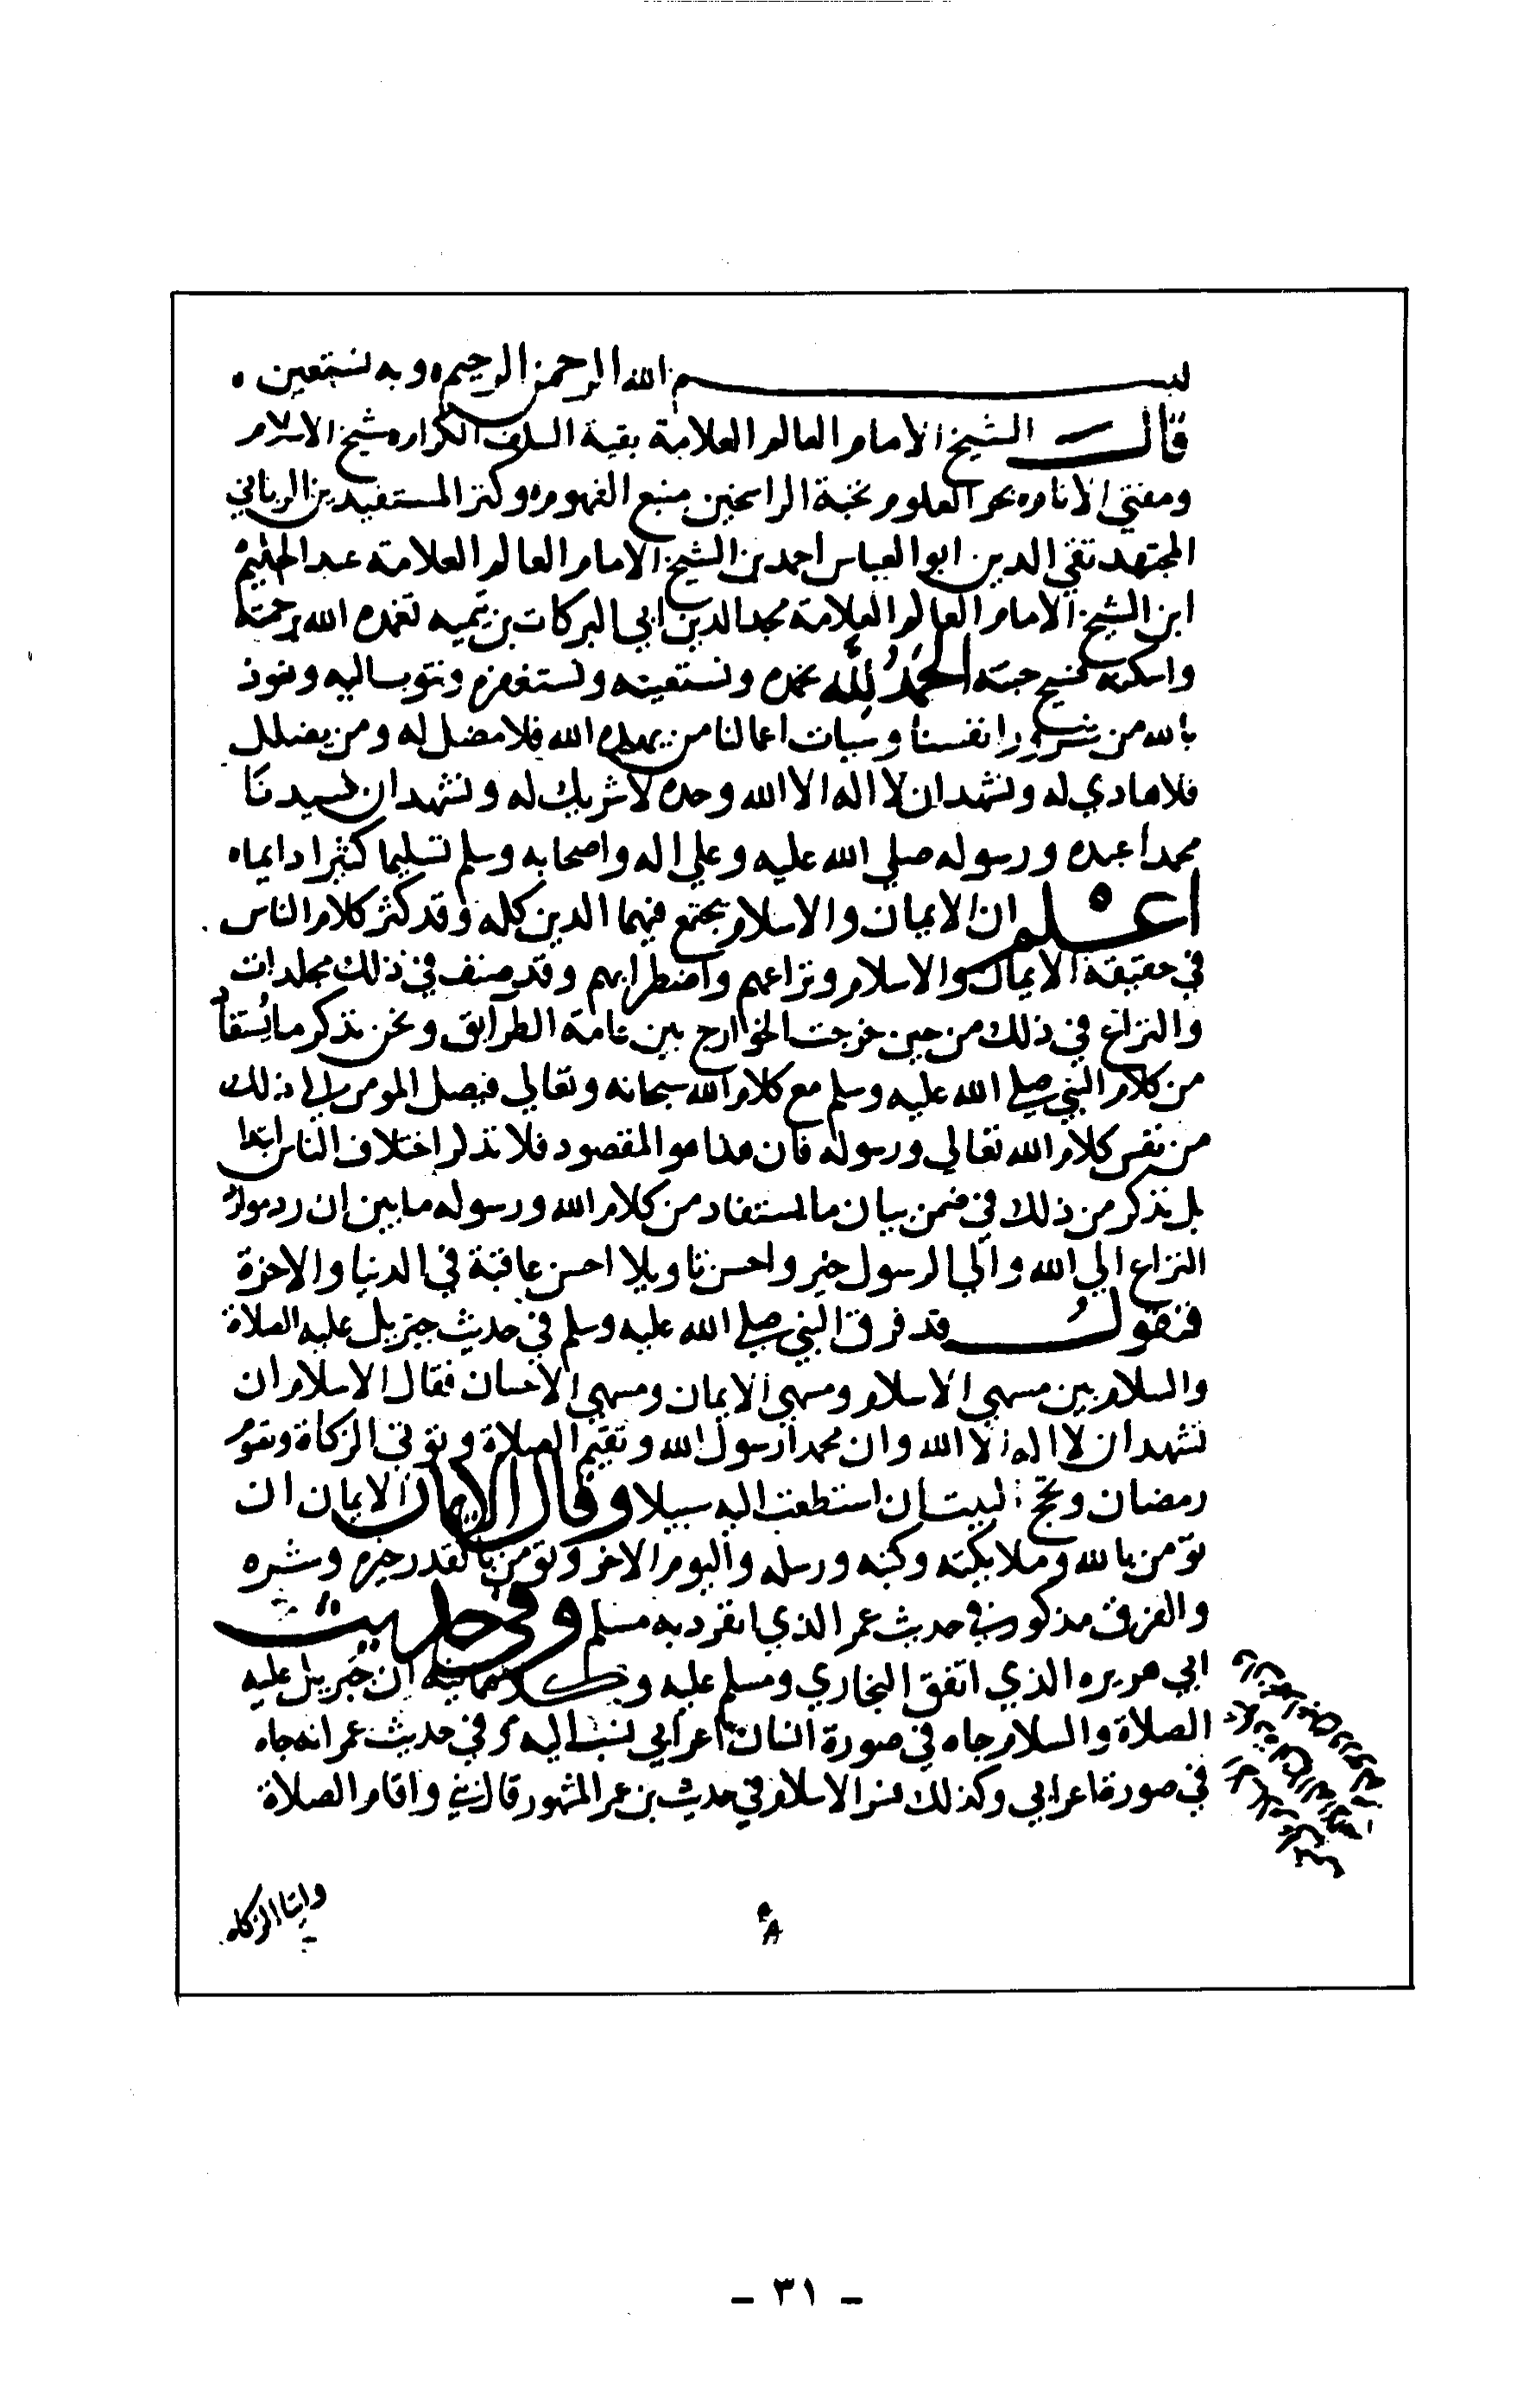 بسم الله الرحمن الرحيم وبه نستعين
قال الشيخ الامام العالم العلامة بقية السلف الكرام شيخ الاسلام
ومفتي الانام بحر العلوم نخبة الراسخين منبع الفهوم وكنز المستفيدين الرباني
المجتهد تقي الدين ابو العباس احمد بن الشيخ الامام العالم العلامة عبد الحليم
ابن الشيخ الامام العالم العلامة مجد الدين ابي البركات بن تيميه تغمده الله برحمته
واسكنه فسيح جنته الحَمْدُ لِلَّهِ نحمده ونستعينه ونستغفره ونتوب اليه ونعوذ
بالله من شرور انفسنا وسيات اعمالنا من يهده الله فلا مضل له ومن يضلل
فلا هادي له ونشهد ان لا اله الا الله وحده لا شريك له ونشهد ان سيدنا
محمدا عبده ورسوله صلي الله عليه وعلي اله واصحابه وسلم تسليما كثيرا دايما
اعلم ان الايمان والاسلام يجتمع فيهما الدين كله وقد كثر كلام الناس
في حقيقة الايمان والاسلام ونزاعهم واضطرابهم وقد صنف في ذلك مجلدات
والنزاع في ذلك من حين خرجت الخوارج بين عامة الطرايق ونحن نذكر ما يُستفا
من كلام النبي صلي الله عليه وسلم مع كلام الله سبحانه وتعالي فيصل المومن الي ذلك
من نفس كلام الله تعالي ورسوله فان هذا هو المقصود فلا نذكر اختلاف الناس ابتدا
بل نذكر من ذلك في ضمن بيان ما يستفاد من كلام الله ورسوله ما يبين ان رد موارد
النزاع الي الله والي الرسول خير واحسن تاويلا احسن عاقبة في الدنيا والاخرة
فنقول قد فرق النبي صلي الله عليه وسلم في حديث جبريل عليه الصلاة
والسلام بين مسمي الاسلام ومسمي الايمان ومسمي الاحسان فقال الاسلام ان
تشهد ان لا اله الا الله وان محمدا رسول الله وتقيم الصلاة وتوتي الزكاة وتصوم
رمضان وتحج البيت ان استطعت اليه سبيلا وقال الايمان الايمان ان
تومن بالله وملايكته وكتبه ورسله واليوم الاخر وتومن بالقدر خيره وشره
والفرق مذكور في حديث عمر الذي انفرد به مسلم وفي حديث
ابي هريره الذي اتفق البخاري ومسلم عليه وكلاهما فيه ان جبريل عليه
الصلاة والسلام جاه في صورة انسان اعرابي في حديث عمر انه جاه
في صورة اعرابي وكذلك فسر الاسلام في حديث بن عمر المشهور قال واقام الصلاة
وايتا الزكاه
- ٣١ -